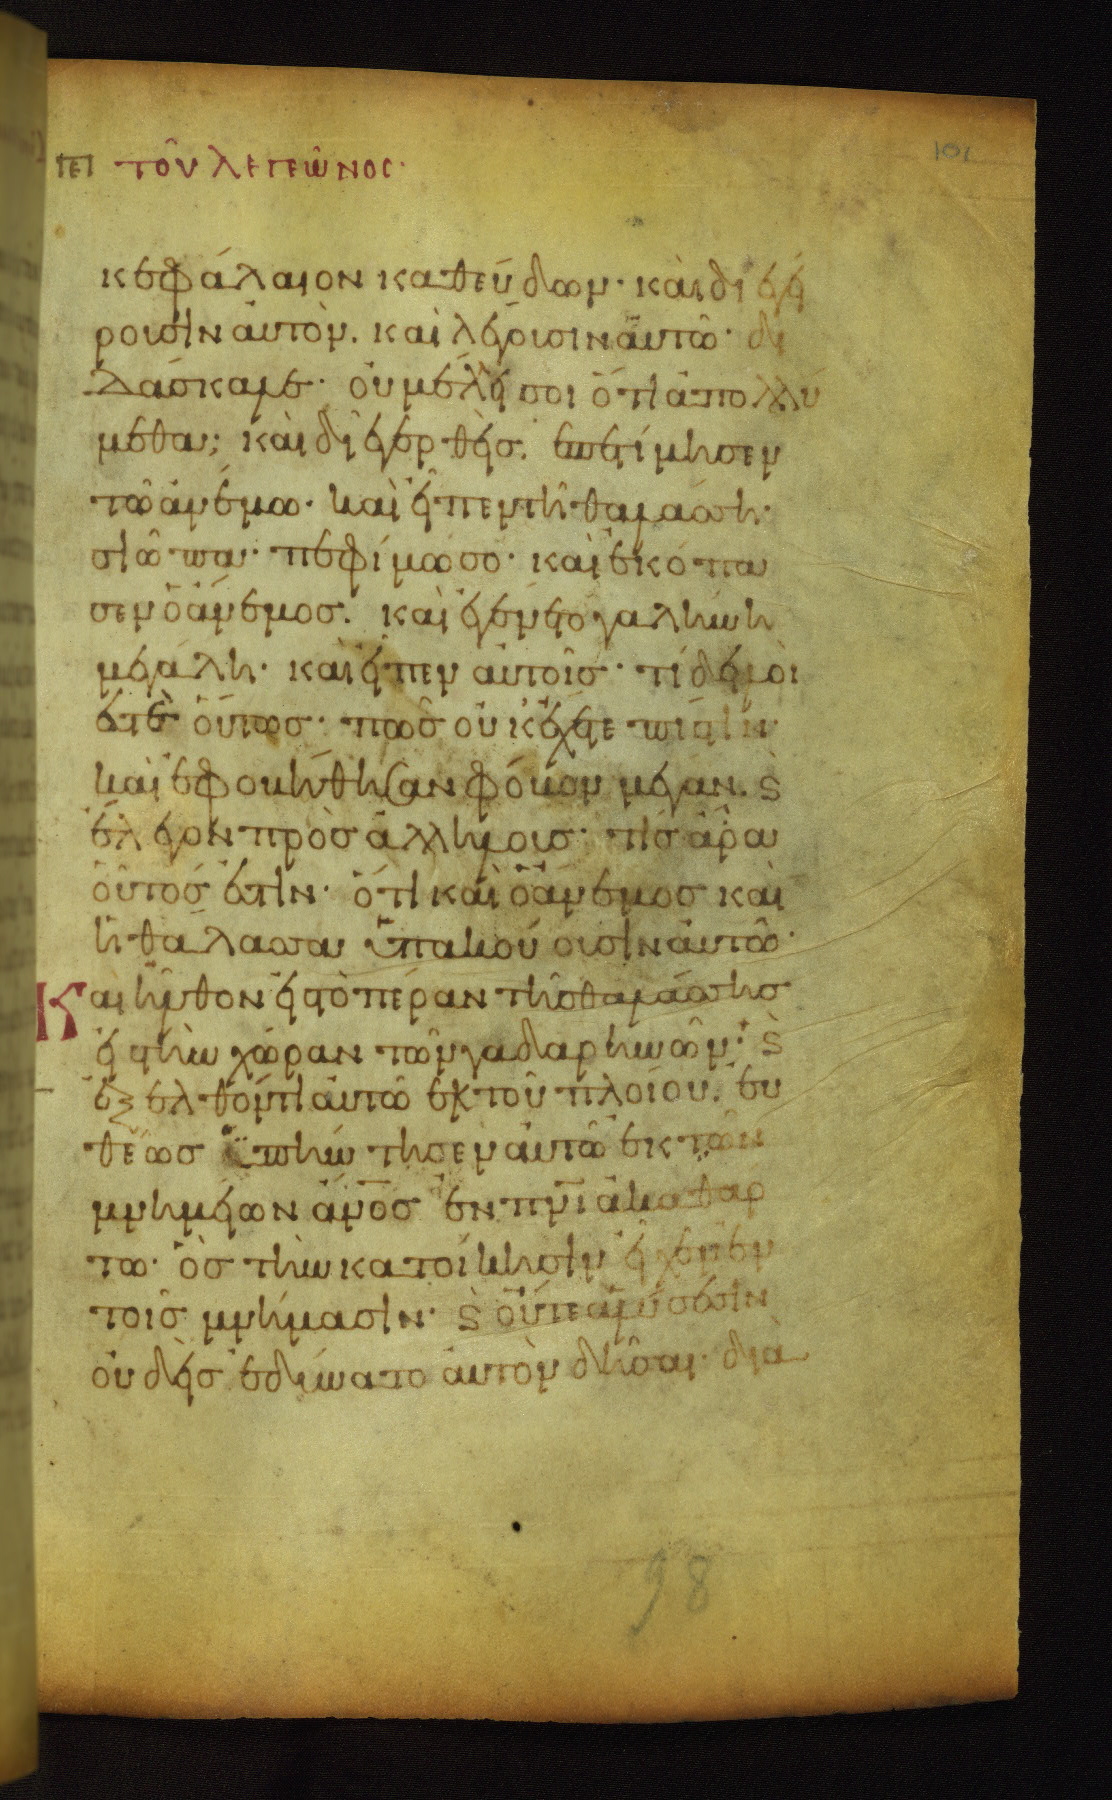 πε τοῦ λεγεῶνος· 101
κεφάλαιον καθεύδων· καὶ διεγεί
ρουσιν αὐτὸν. καὶ λέγουσιν αὐτῶ· δι
δάσκαλε· οὐ μέλει σοι ὅτι ἀπολλύ
μεθα; καὶ διεγερθεὶς. ἐπετίμησεν
τῶ ἀνέμω· καὶ εἶπεν τῆ θαλάσση·
σιῶπα· πεφίμωσο· καὶ ἐκόπα
σεν ὁ ἄνεμος. καὶ ἐγένετο γαλήνη
μεγάλη· καὶ εἶπεν αὐτοῖς· τί δειλοί
ἐστὲ οὕτως· πῶς οὐκ ἔχετε πίστιν·
καὶ ἐφοβήθησαν φόβον μέγαν. ϛ̀
ἔλεγον πρὸς ἀλλήλους· τίς ἄρα
οὗτός ἐστιν· ὅτι καὶ ὁ ἄνεμος καὶ
ἡ θάλασσα ὑπακούουσιν αὐτῶ·
Καὶ ἦλθον εἰς τὸ πέραν τῆς θαλάσσης
εἰς τὴν χώραν τῶν γαδαρηνῶν· ϛ̀
ἐξελθόντι αὐτῶ ἐκ τοῦ πλοίου. εὐ
θέως ὑπήντησεν αὐτῶ ἐκ τῶν
μνημείων ἄνος ἐν πνι ἀκαθάρ
τω· ὃς τὴν κατοίκησιν εἶχεν ἐν
τοῖς μνήμασιν· ϛ̀ οὔτε ἁλύσεσιν
οὐδεὶς ἐδύνατο αὐτὸν δῆσαι· διὰ
98